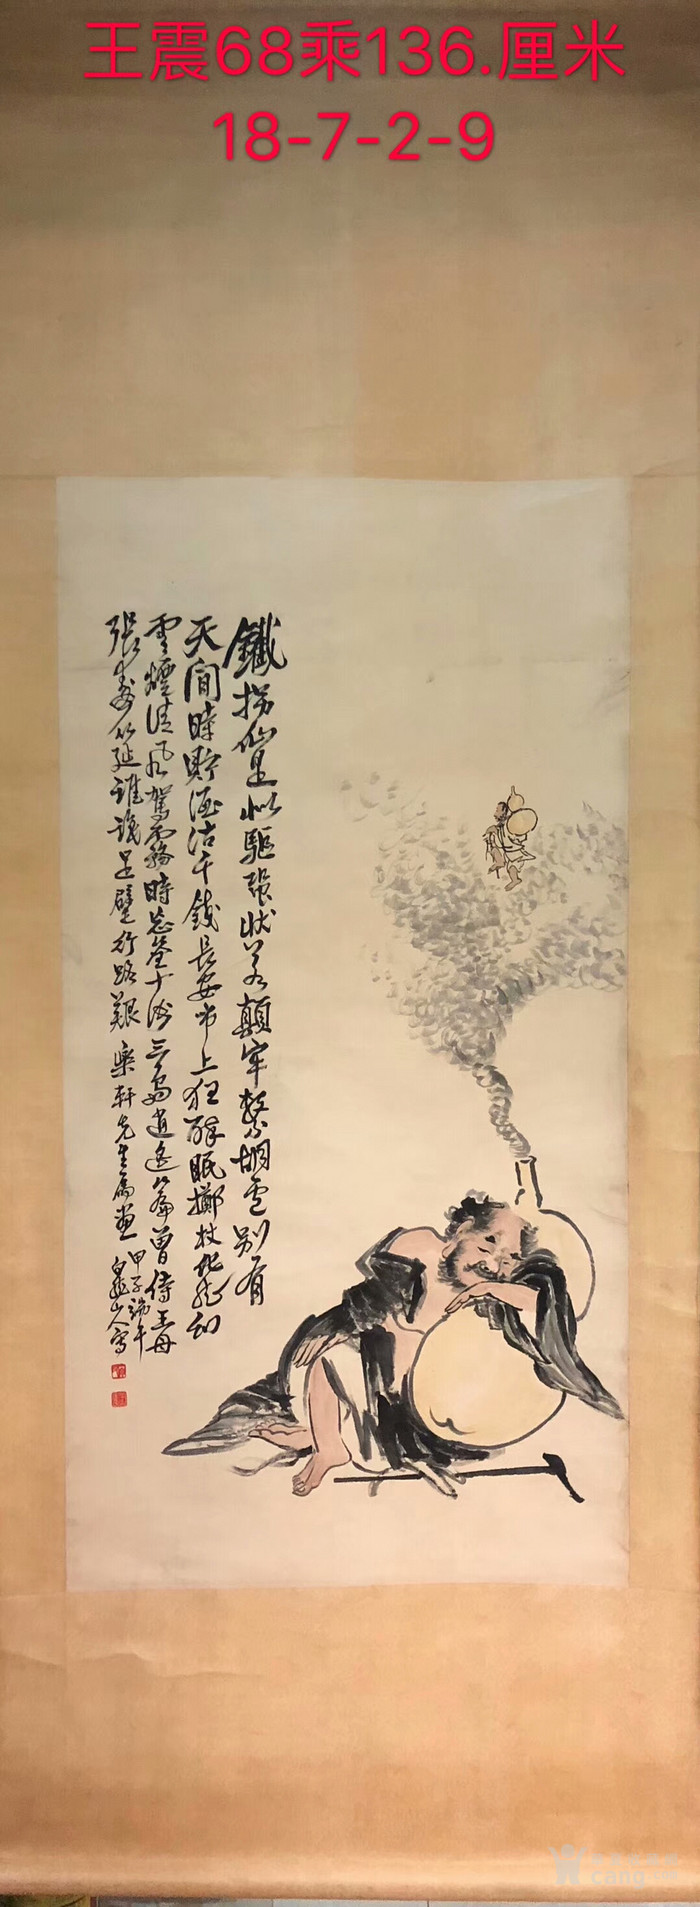 王震68乘136.厘米
18-7-2-9
鐵拐仙是似驅張狀若顛牢繫胡盧別有
天閒時貯酒沽千錢長安市上狂醉眠擲杖化龍幻
雲煙清風駕霧時忘筌十洲三島逍遙篇曾侍王母
張壽筵誰識足躄行路艱 樂軒先生屬畫
甲子端午
白龍山人寫
cang.com